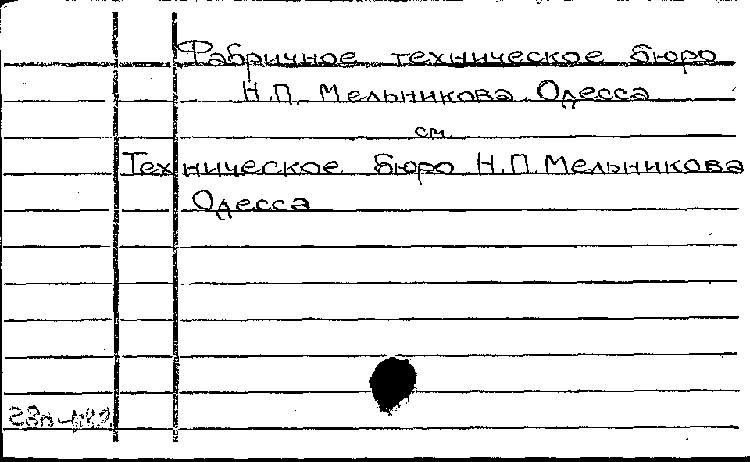 Фабричное техническое бюро
Н.П. Мельникова Одесса
см.
Техническое бюро Н.П. Мельникова
Одесса